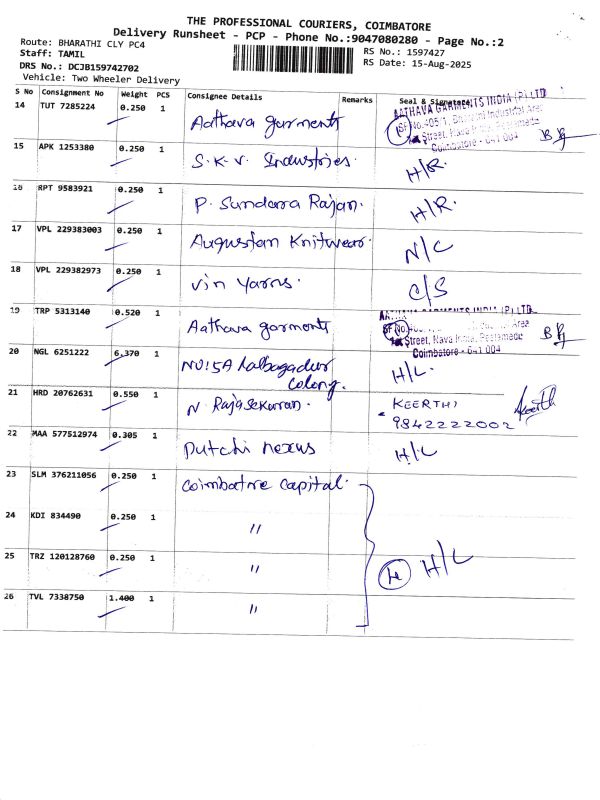 THE PROFESSIONAL COURIERS, COIMBATORE
Delivery Runsheet - PCP - Phone No.:9047080280 - Page No.:2
Route: BHARATHI CLY PC4
RS No.: 1597427
Staff: TAMIL
RS Date: 15-Aug-2025
DRS No.: DCJB159742702
Vehicle: Two Wheeler Delivery
S No Consignment No Weight PCS Consignee Details Remarks Seal & Signature
14 TUT 7285224 0.250 1 Aathava garments
AATHAVA GARMENTS INDIA (P) LTD
SF No.-405/1, Bharathi Industrial Area
Street, Nava India, Peelamedu
Coimbatore - 641 004
15 APK 1253380 0.250 1 S.K.V. Industries. H/R.
16 RPT 9583921 0.250 1 P. Sundara Rajan. H/R.
17 VPL 229383003 0.250 1 Augustan Knitwear. N/C
18 VPL 229382973 0.250 1 Vin Yarns. C/S
19 TRP 5313140 0.520 1 Aathava garments
AATHAVA GARMENTS INDIA (P) LTD
SF No. Area
Street, Nava India, Peelamedu
Coimbatore - 641 004
20 NGL 6251222 6.370 1 NO:5A Lalbagadur H/L.
colony.
21 HRD 20762631 0.550 1 N. Rajasekaran. KEERTHI
9842222002 Keerth
22 MAA 577512974 0.305 1 Dutchi nexus H/L
23 SLM 376211056 0.250 1 Coimbatore capital.
24 KDI 834490 0.250 1 "
25 TRZ 120128760 0.250 1 " 4 H/L
26 TVL 7338750 1.400 1 "